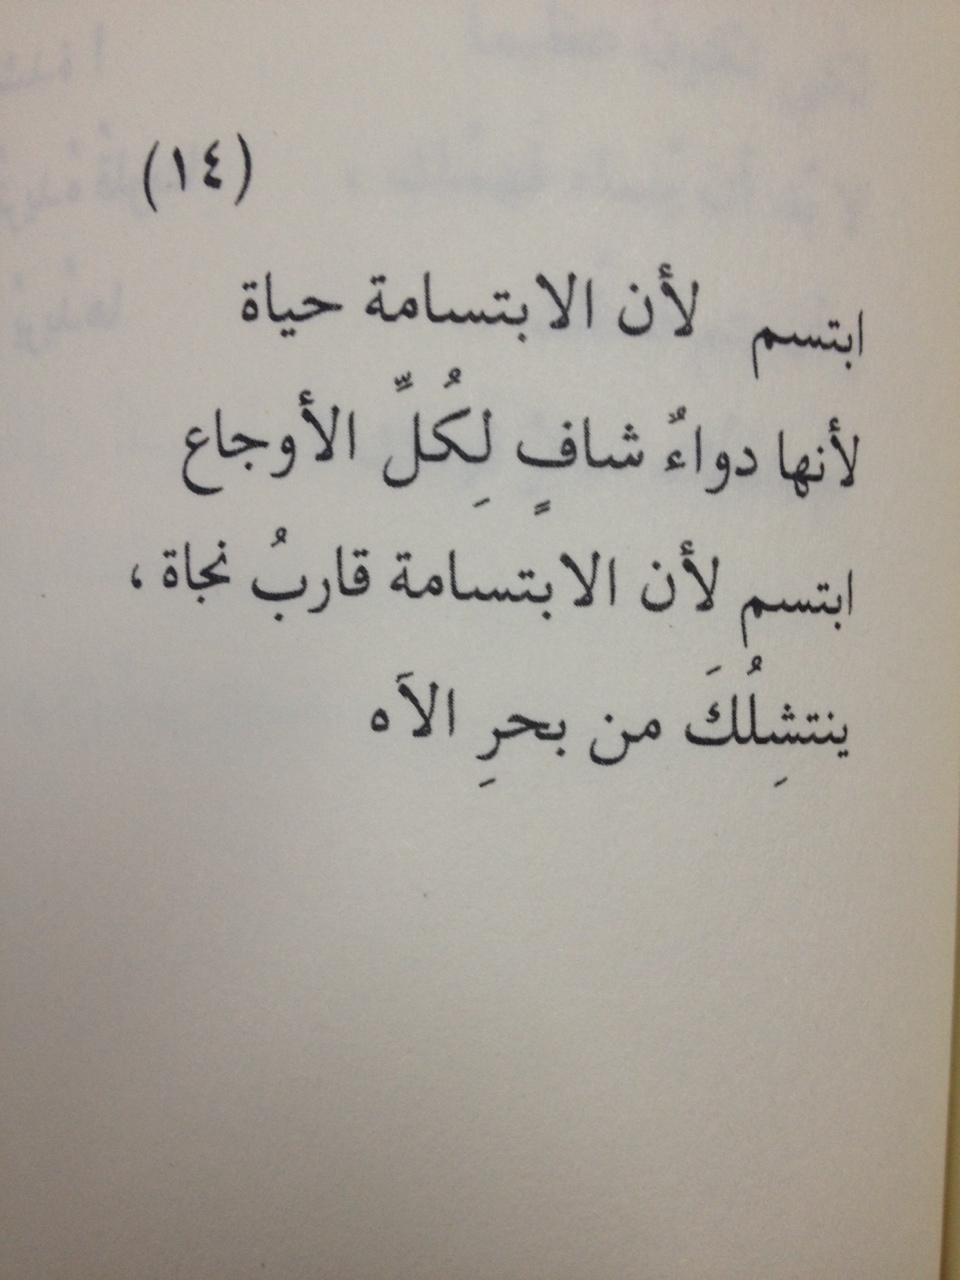 (١٤)
ابتسم لأن الابتسامة حياة
لأنها دواءٌ شافٍ لِكُلِّ الأوجاع
ابتسم لأن الابتسامة قاربُ نجاة ،
ينتشِلُكَ من بحرِ الاَه